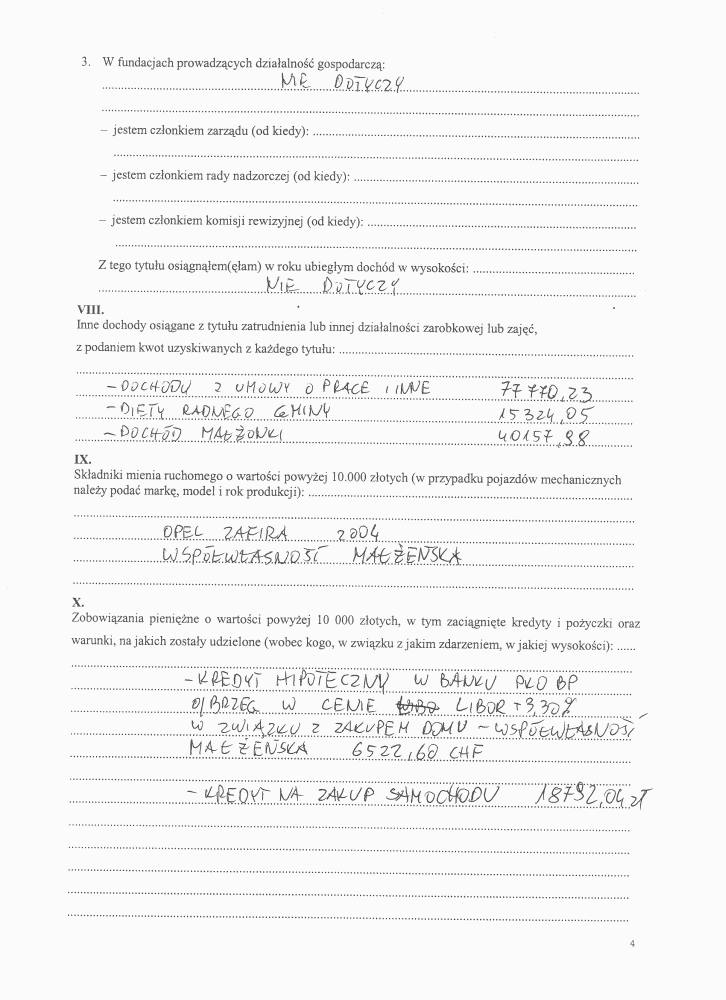 3. W fundacjach prowadzących działalność gospodarczą:
NIE DOTYCZY
– jestem członkiem zarządu (od kiedy):
– jestem członkiem rady nadzorczej (od kiedy):
– jestem członkiem komisji rewizyjnej (od kiedy):
Z tego tytułu osiągnąłem(ęłam) w roku ubiegłym dochód w wysokości:
NIE DOTYCZY
VIII.
Inne dochody osiągane z tytułu zatrudnienia lub innej działalności zarobkowej lub zajęć,
z podaniem kwot uzyskiwanych z każdego tytułu:
– DOCHODY Z UMOWY O PRACE I INNE 77 770,23
– DIETY RADNEGO GMINY 15324,05
– DOCHÓD MAŁŻONKI 40157,98
IX.
Składniki mienia ruchomego o wartości powyżej 10.000 złotych (w przypadku pojazdów mechanicznych
należy podać markę, model i rok produkcji):
OPEL ZAFIRA 2004
WSPÓŁWŁASNOŚĆ MAŁŻEŃSKA
X.
Zobowiązania pieniężne o wartości powyżej 10 000 złotych, w tym zaciągnięte kredyty i pożyczki oraz
warunki, na jakich zostały udzielone (wobec kogo, w związku z jakim zdarzeniem, w jakiej wysokości):
– KREDYT HIPOTECZNY W BANKU PKO BP
O/BRZEG W CENIE LIBOR +3,30%
W ZWIĄZKU Z ZAKUPEM DOMU – WSPÓŁWŁASNOŚĆ
MAŁŻEŃSKA 6522,60 CHF
– KREDYT NA ZAKUP SAMOCHODU 18792,04 zł
4